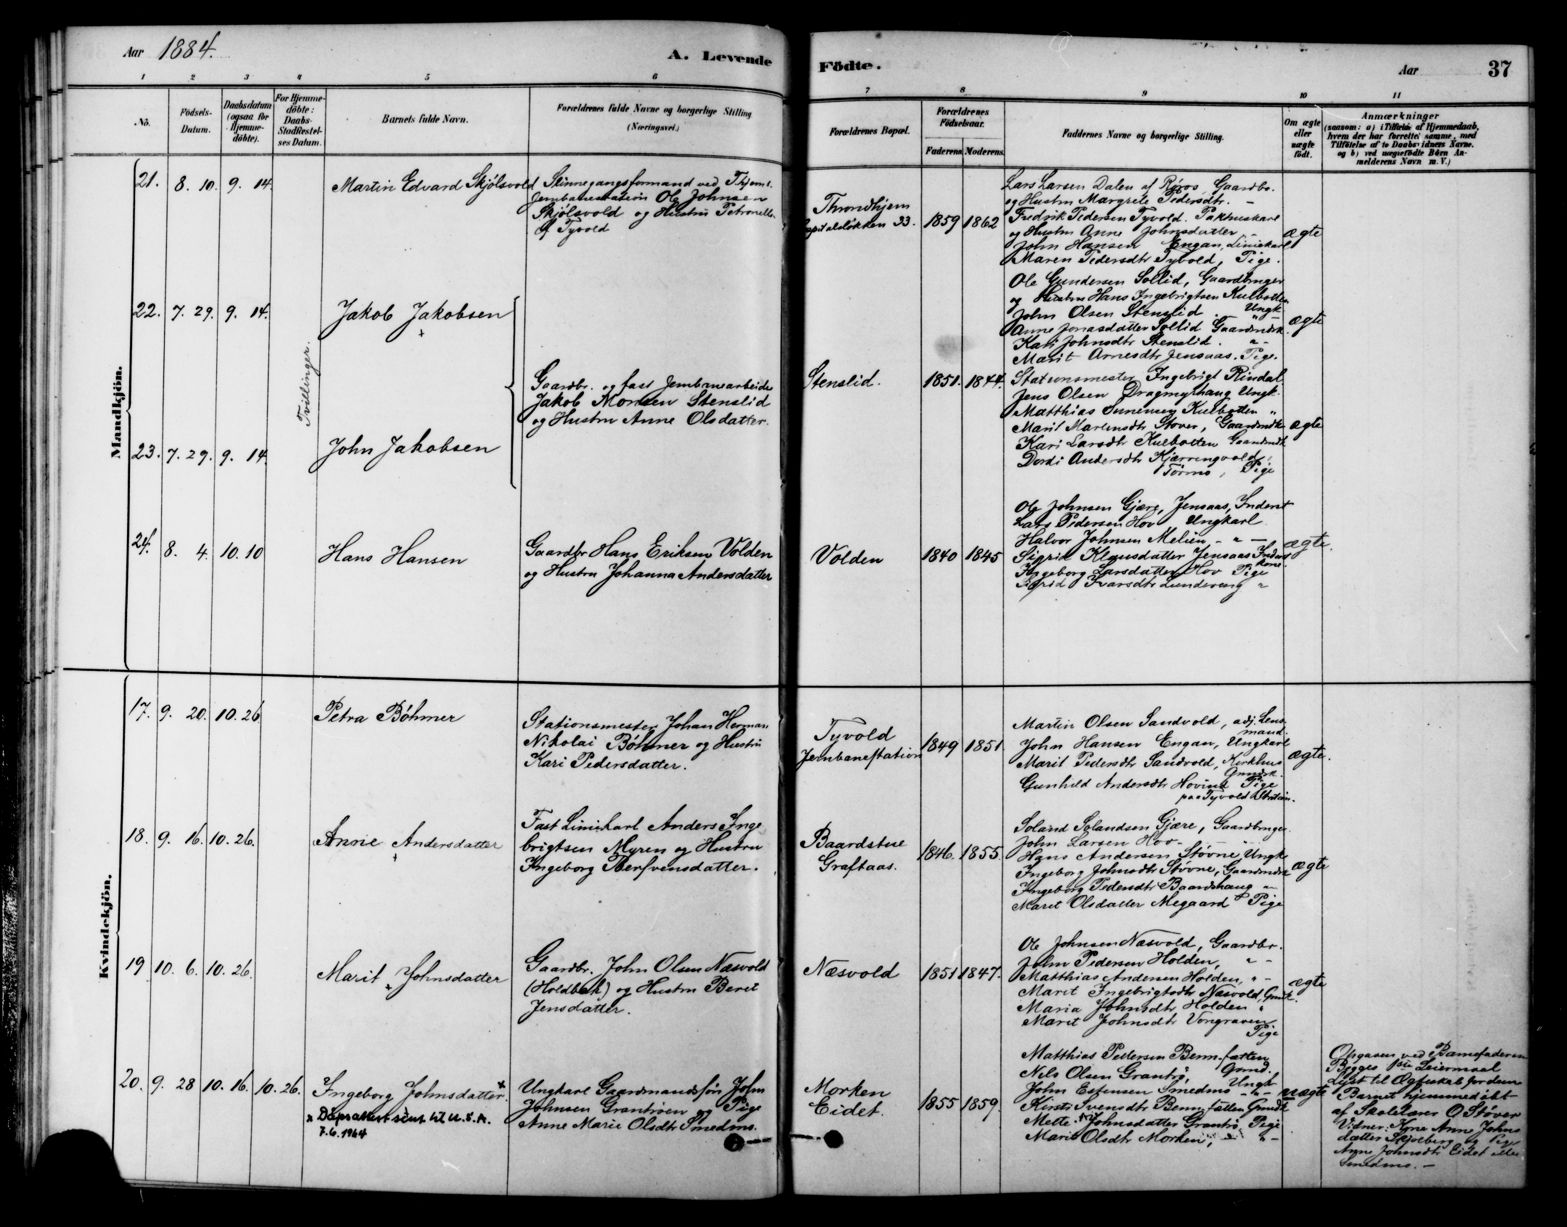 Aar 1884.
A. Levende
Födte.
Aar
37
1 2 3 4 5 6
7 8 9 10 11
No.
Födsels-
Datum.
Daabsdatum
(ogsaa for
Hjemme-
döbte).
For Hjemme-
döbte:
Daabs-
Stadfæstel-
ses Datum.
Barnets fulde Navn.
Forældrenes fulde Navne og borgerlige Stilling
(Næringsvei.)
Forældrenes Bopæl.
Forældrenes
Födselsaar.
Faderens Moderens.
Faddernes Navne og borgerlige Stilling.
Om ægte
eller
uægte
født.
Anmærkninger
(saasom: a) i Tilfælde af Hjemmedaab,
hvem der har forrettet samme, med
Tilføielse af to Daabsvidners Navne.
og b) ved uægtefödte Börn An-
melderens Navn m. V.)
Mandkjön.
21. 8. 10. 9. 14.
Martin Edvard Skjølsvold
Skinnegangsformand ved Thjems
Jernbanestation Ole Johnsen
Skjølsvold og Hustru Petronelle
af Tyvold
Throndhjem
Kapitelsløkken 33.
1859 1862
Lars Larsen Dalen af Røros, Gaardbr.
og Hustru Margrete Pedersdtr. -
Fredrik Pedersen Tyvold. Pakhuskarl
og Hustru Anne Johnsdatter -
John Hansen Engan, Liniekarl
Maren Pedersdtr Tyvold, Pige.
ægte
22. 7. 29. 9. 14.
Jakob Jakobsen
Tvillinger.
Ole Gundersen Sollid, Gaardbruger
og Hustru Hans Ingebrigtsen Kulbotten
John Olsen Stenslid. Ungk.
Anne Jonasdatter Sollid Gaardmdk.
Kari Johnsdtr Stenslid. "
Marit Arnesdtr Jensaas. Pige.
ægte
Gaardbr. og fast Jernbanearbeider
Jakob Monsen Stenslid
og Hustru Anne Olsdatter.
Stenslid.
1851. 1844.
23. 7. 29. 9. 14
John Jakobsen
Stationsmester Ingebrigt Rindal
Jens Olsen Dragmyrhaug Ungk.
Matthias Kulbotten "
Marit Martensdtr Støver, Gaardmdk
Kari Larsdtr Kulbotten Gaardmdk
Dordi Andersdtr Kjærringvold,
Tørmo, Pige
ægte
24. 8. 4. 10. 10
Hans Hansen
Gaardbr Hans Eriksen Volden
og Hustru Johanna Andersdatter
Volden
1840 1845
Ole Johnsen Gjære, Jensaas, Inderst
Lars Pedersen Hov Ungkarl
Halvor Johnsen Melien, - " -
Sigrid Klausdatter Jensaas Inderst
kone
Ingeborg Larsdatter Hov Pige
Sigrid Ivarsdtr Lundeveng "
ægte.
Kvindekjön.
17. 9. 20. 10. 26
Petra Bøhmer
Stationsmester Johan Herman
Nikolai Bøhmer og Hustru
Kari Pedersdatter.
Tyvold
Jernbanestation
1849 1851.
Martin Olsen Sandvold, adj. Lens
mand.
John Hansen Engan, Ungkarl
Marit Pedersdtr Sandvold, Kirkhus
Gmdsk.
Gunhild Andersdtr Hovind Pige
paa Tyvold Station.
ægte.
18. 9. 16. 10. 26.
Anne Andersdatter
Fast Liniekarl Anders Inge
brigtsen Myren og Hustru
Ingeborg Thorsvensdatter.
Baardstue
Graftaas.
1846. 1855.
Soland Solandsen Gjære, Gaardbruger.
John Larsen Hov - -
Hans Andersen Støvne, Ungk
Ingeborg Johnsdtr Støvne, Gaardmdk
Ingeborg Pedersdtr Baardshaug "
Maret Olsdatter Megaard Pige
ægte
19 10. 6. 10. 26.
Marit Johnsdatter
Gaardbr. John Olsen Næsvold
(Holdbek) og Hustru Beret
Jensdatter.
Næsvold
1851 1847.
Ole Johnsen Næsvold, Gaardbr.
John Pedersen Holden, " -
Matthias Andersen Holden, " -
Maret Ingebrigtsdtr Næsvold, Gmdk.
Maria Johnsdtr Holden "
Maret Johnsdtr Vongraven
Pige
ægte
20. 9. 28 10. 16. 10. 26.
Ingeborg Johnsdatter. x
x Dåpsattest sent til U.S.A.
7.6.1944
Ungkarl Gaardmandssøn John
Johnsen Grantrøen og Pige
Anne Marie Olsdtr Smedmo.
Morken
Eidet.
1855 1859.
Matthias Pedersen Bennsfatten
Gmd.
Nils Olsen Grantrø Ungk
John Estensen Smedmo " -
Kirsti Svendsdtr Bennsfatten Gmdk
Mette Johnsdatter Grantrø Pige
Marit Olsdtr Morken, "-
uægte
Opgaven ved Barnefaderen
Begges 1ste Leiermaal
Lyst til Ægteskab fordum
Barnet hjemmedøbt
af Skolelærer O Støver
Vidner: Anne Johns
datter og Pige
Anne Johnsdtr Eidet eller
Smedmo. -